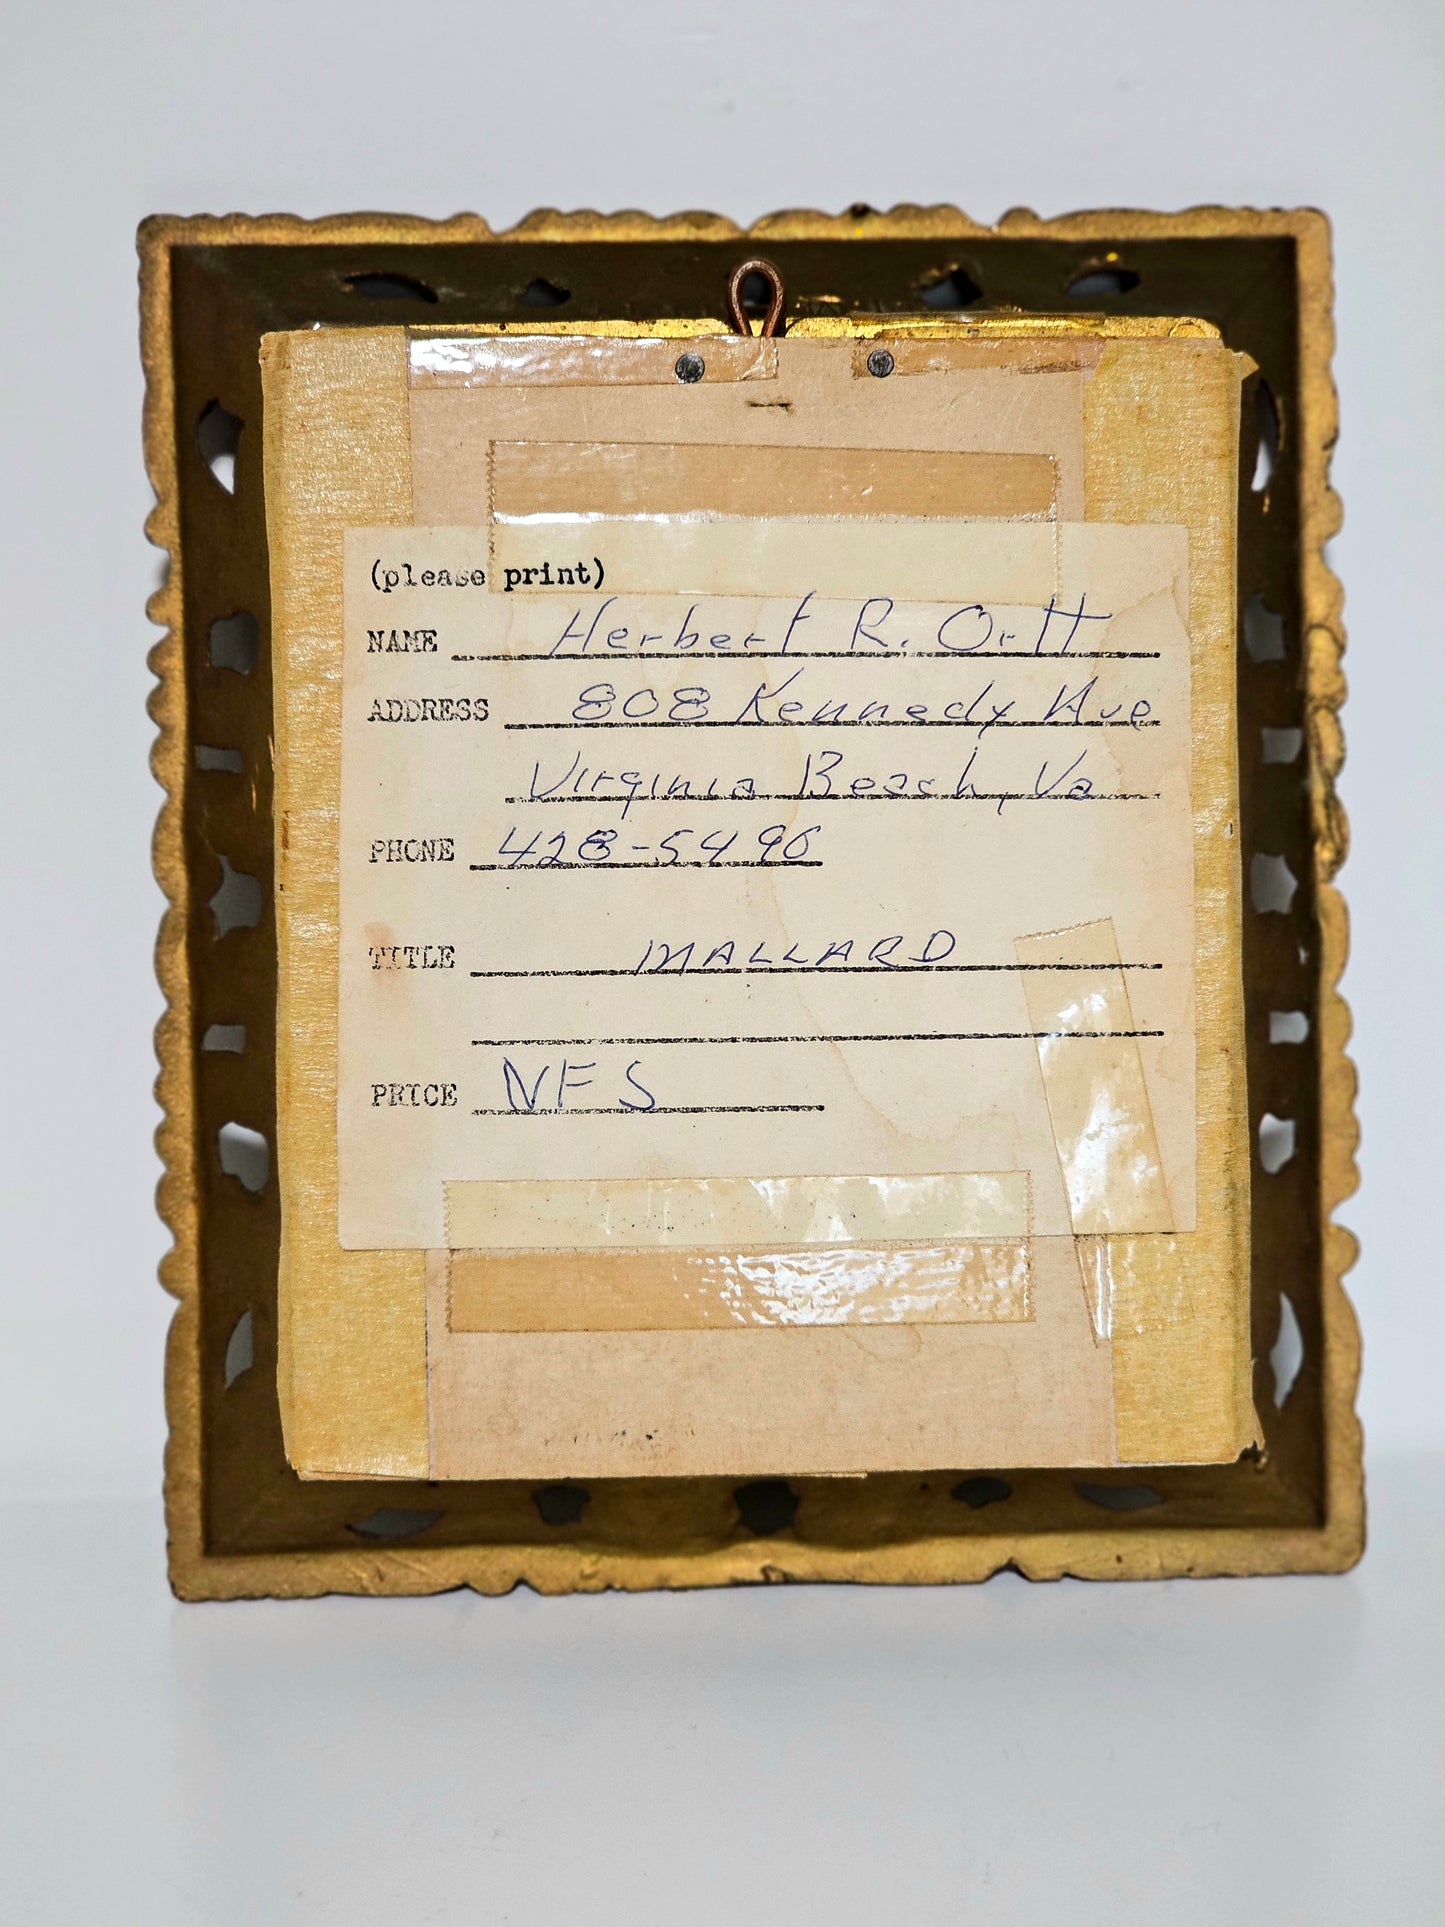 (please print)
NAME Herbert R. Ortt
ADDRESS 808 Kennedy Ave
Virginia Beach, Va
PHONE 428-5496
TITLE MALLARD
PRICE NFS